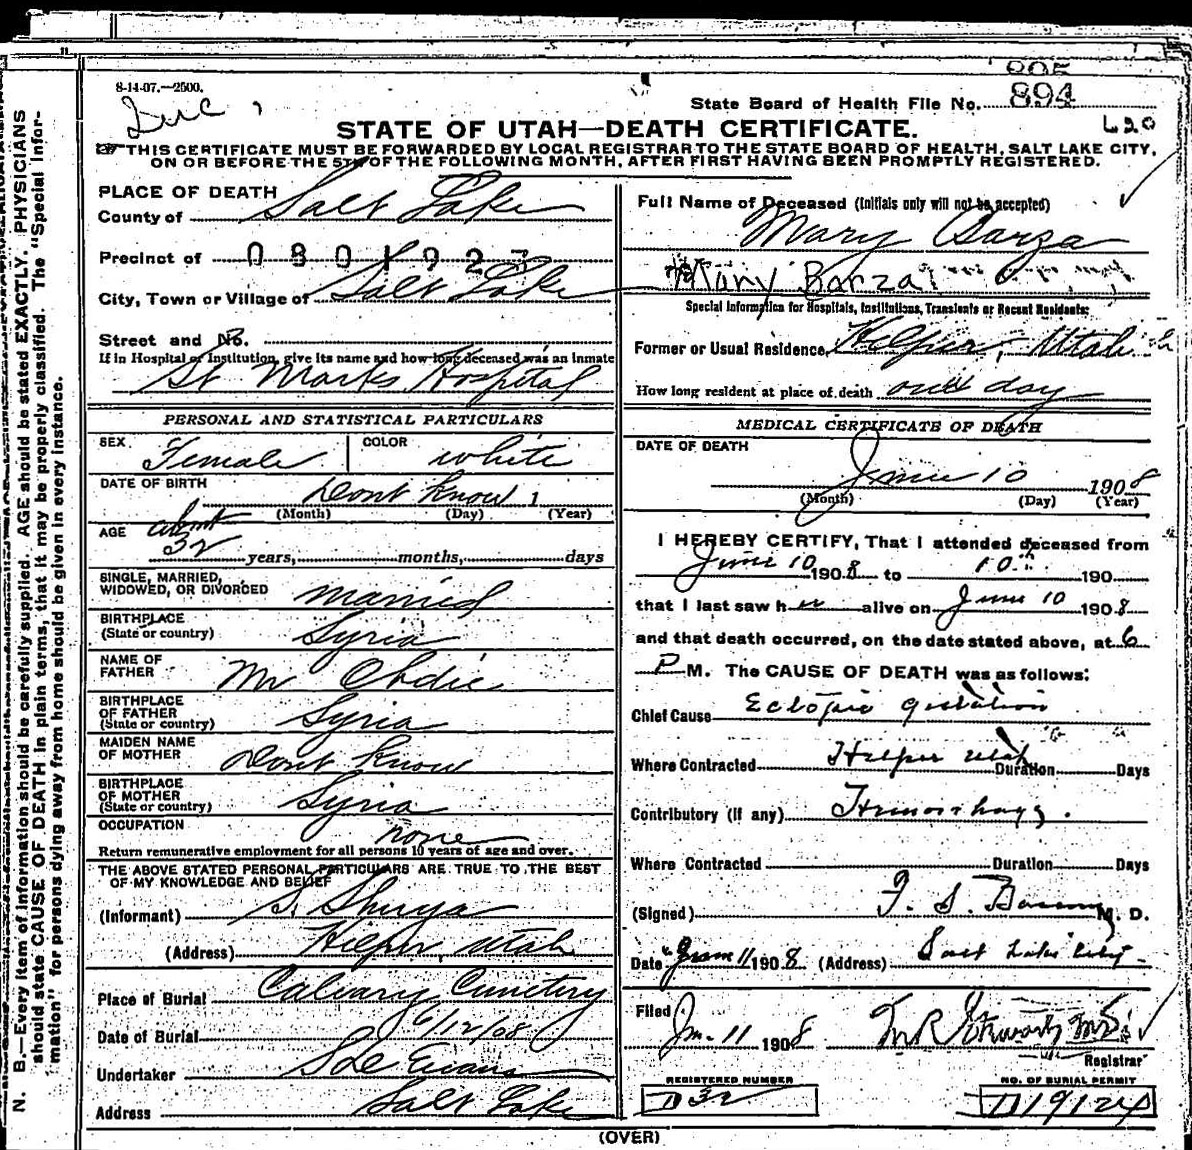 8-14-07.—2500.
805
State Board of Health File No. 894
620
STATE OF UTAH—DEATH CERTIFICATE.
THIS CERTIFICATE MUST BE FORWARDED BY LOCAL REGISTRAR TO THE STATE BOARD OF HEALTH, SALT LAKE CITY,
ON OR BEFORE THE 5TH OF THE FOLLOWING MONTH, AFTER FIRST HAVING BEEN PROMPTLY REGISTERED.
N. B.—Every item of information should be carefully supplied. AGE should be stated EXACTLY. PHYSICIANS
should state CAUSE OF DEATH in plain terms, that it may be properly classified. The "Special Infor-
mation" for persons dying away from home should be given in every instance.
PLACE OF DEATH
County of Salt Lake
Precinct of 0801923
City, Town or Village of Salt Lake
Street and No.
If in Hospital or Institution, give its name and how long deceased was an inmate
St Marks Hospital
PERSONAL AND STATISTICAL PARTICULARS
SEX Female COLOR white
DATE OF BIRTH Dont know 1
(Month) (Day) (Year)
AGE about
32 years, months, days
SINGLE, MARRIED,
WIDOWED, OR DIVORCED married
BIRTHPLACE
(State or country) Syria
NAME OF
FATHER Mr Obdie
BIRTHPLACE
OF FATHER
(State or country) Syria
MAIDEN NAME
OF MOTHER Dont know
BIRTHPLACE
OF MOTHER
(State or country) Syria
OCCUPATION none
Return remunerative employment for all persons 10 years of age and over.
THE ABOVE STATED PERSONAL PARTICULARS ARE TRUE TO THE BEST
OF MY KNOWLEDGE AND BELIEF
(Informant) S. Shuya
(Address) Helper, Utah
Place of Burial Calvary Cemetery
Date of Burial 6/12/08
Undertaker Evans
Address Salt Lake
Full Name of Deceased (Initials only will not be accepted)
Mary Barza
Mary Barza
Special Information for Hospitals, Institutions, Transients or Recent Residents:
Former or Usual Residence Helper, Utah
How long resident at place of death one day
MEDICAL CERTIFICATE OF DEATH
DATE OF DEATH
June 10 1908
(Month) (Day) (Year)
I HEREBY CERTIFY, That I attended deceased from
June 10 1908 to 10th 190
that I last saw her alive on June 10 1908
and that death occurred, on the date stated above, at 6
P M. The CAUSE OF DEATH was as follows:
Chief Cause Ectopic gestation
Where Contracted Helper Utah Duration Days
Contributory (if any) Hemorrhage.
Where Contracted Duration Days
(Signed) F. S. M. D.
Date June 11 1908 (Address) Salt Lake City
Filed
Jun. 11 1908
Registrar
REGISTERED NUMBER
D32
NO. OF BURIAL PERMIT
D19124
(OVER)